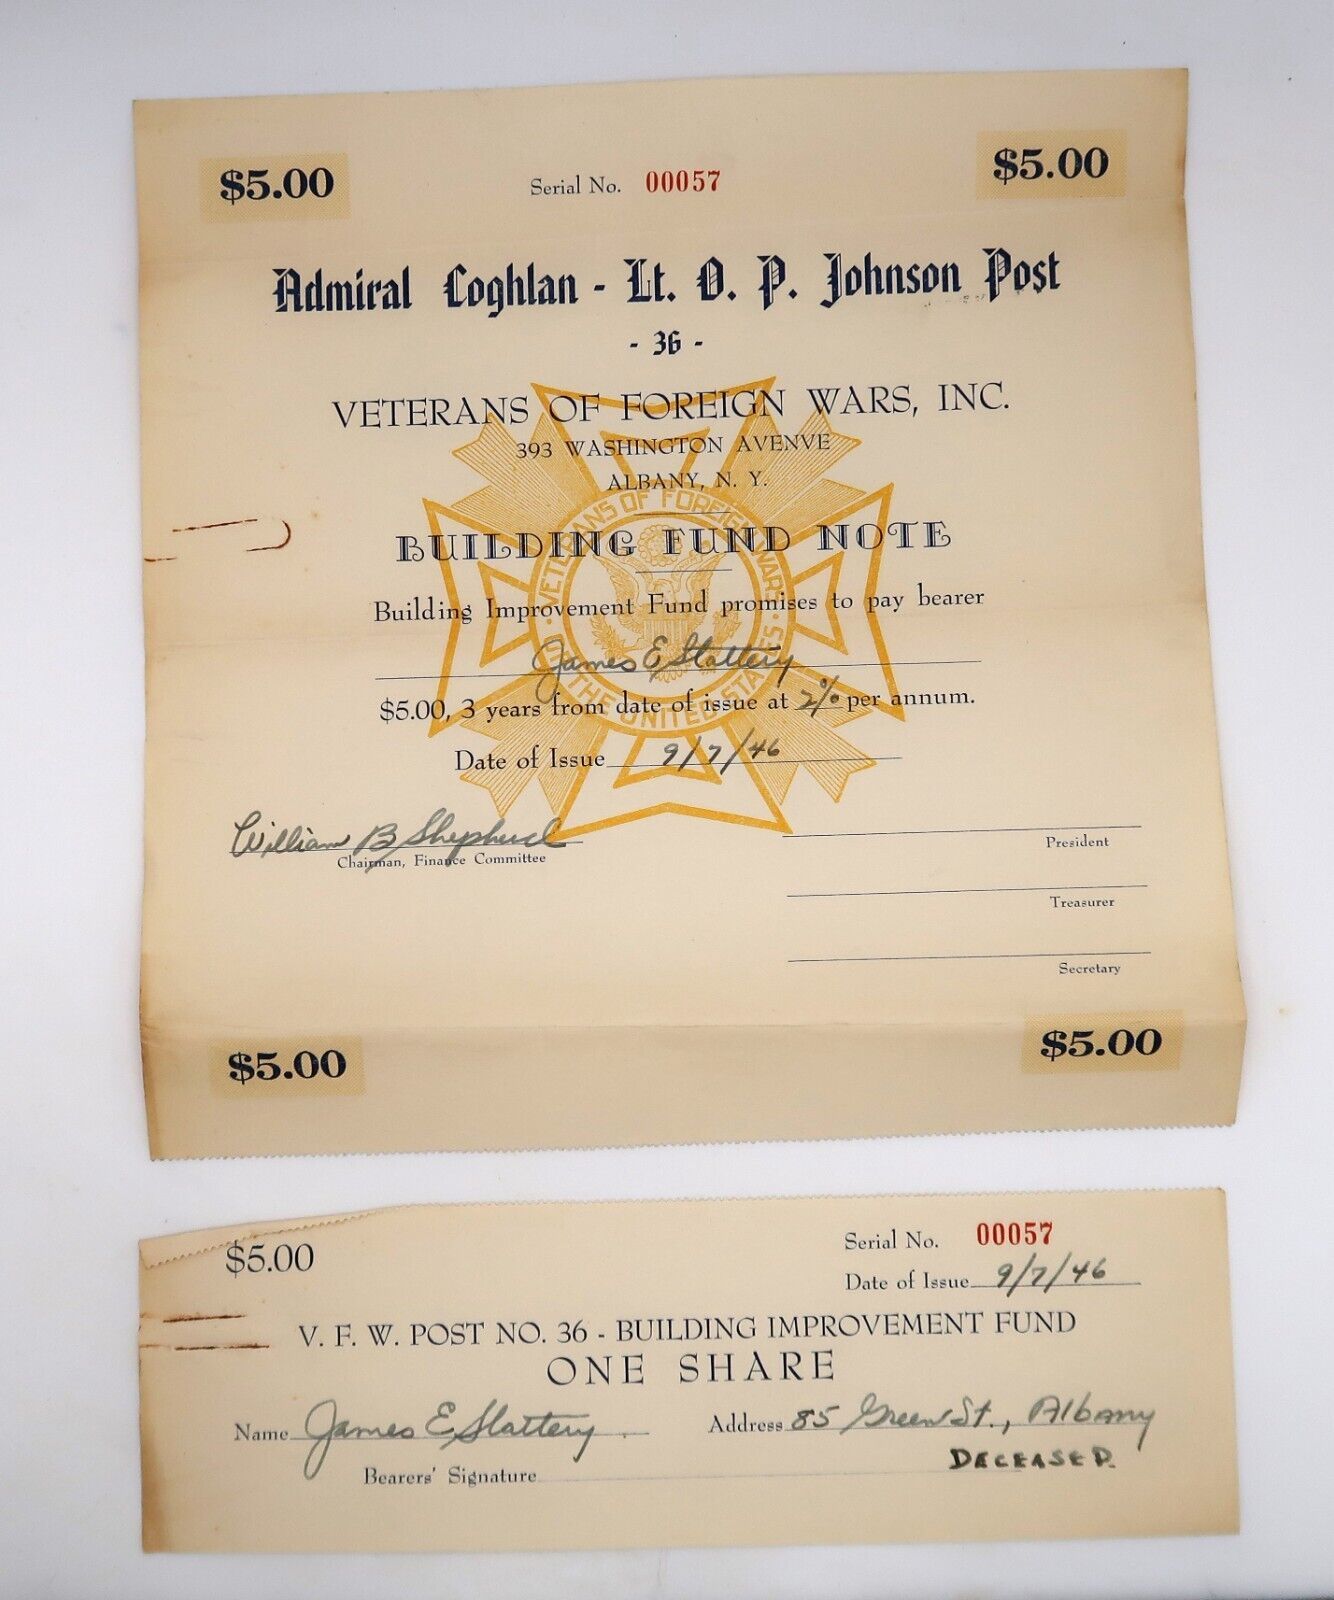 $5.00 Serial No. 00057 $5.00
Admiral Coghlan - Lt. O. P. Johnson Post
- 36 -
VETERANS OF FOREIGN WARS, INC.
393 WASHINGTON AVENVE
ALBANY, N. Y.
VETERANS OF FOREIGN WARS · OF THE UNITED STATES ·
BUILDING FUND NOTE
Building Improvement Fund promises to pay bearer
James E Slattery
$5.00, 3 years from date of issue at 2% per annum.
Date of Issue 9/7/46
William B Shepherd
Chairman, Finance Committee
President
Treasurer
Secretary
$5.00 $5.00
$5.00 Serial No. 00057
Date of Issue 9/7/46
V. F. W. POST NO. 36 - BUILDING IMPROVEMENT FUND
ONE SHARE
Name James E Slattery Address 85 Green St., Albany
DECEASED.
Bearers' Signature